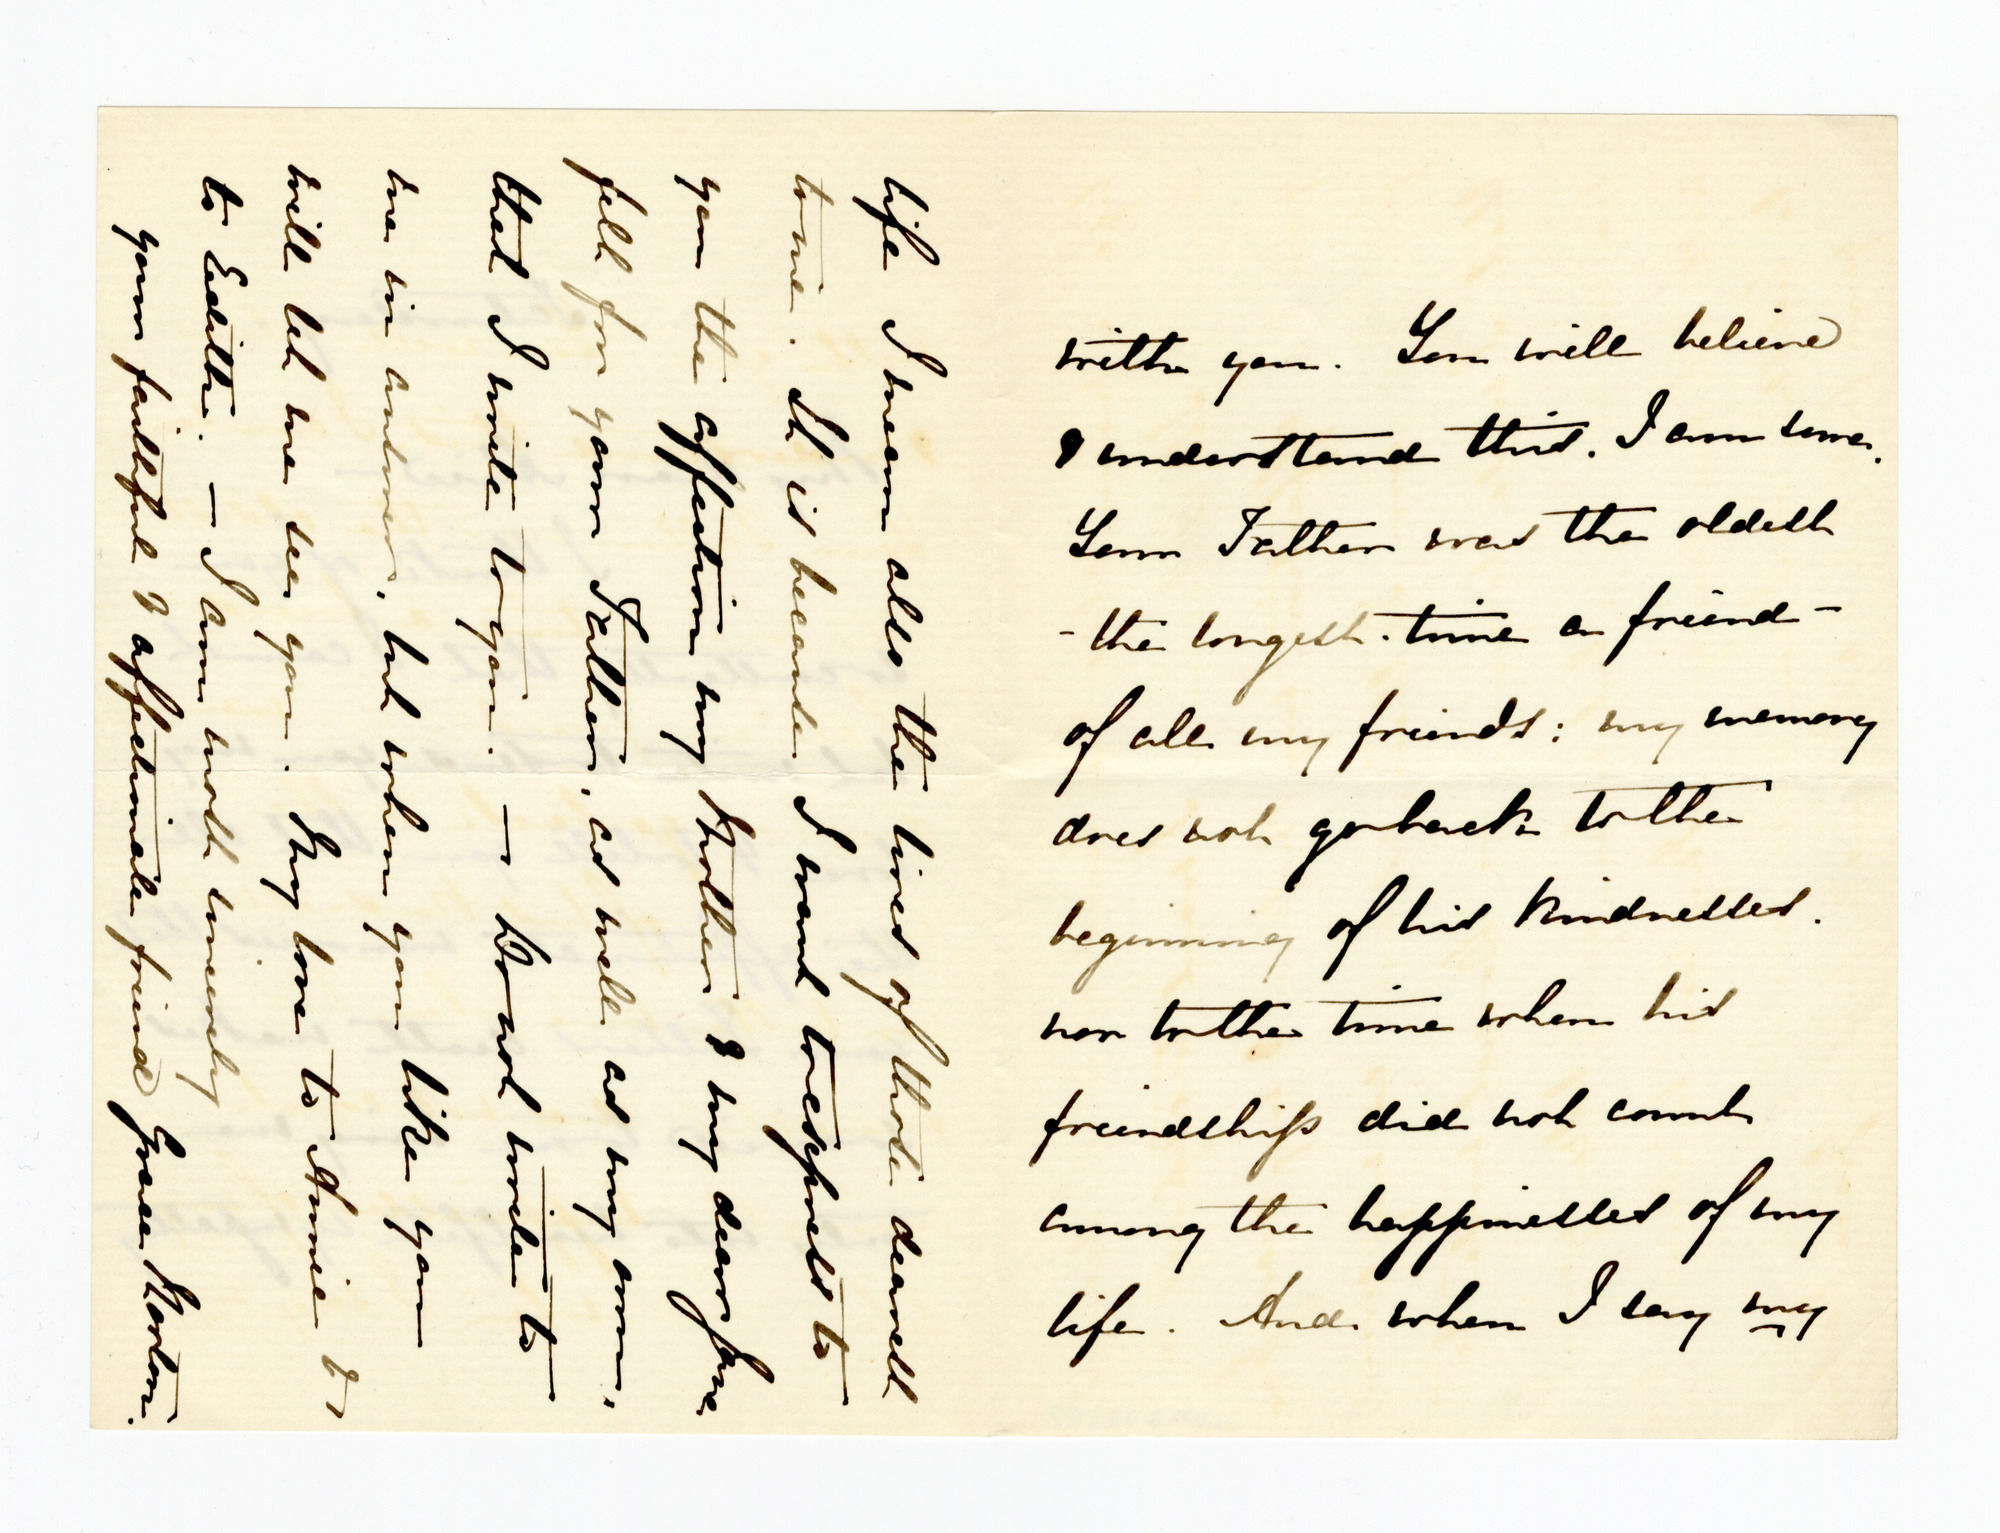 with you. You will believe
& understand this. I am sure.
Your Father was the oldest
- the longest-time a friend -
of all my friends: my memory
does not go back to the
beginning of his kindnesses.
nor to the time when his
friendship did not count
among the happinesses of my
life. And when I say my
life I mean also the lives of those dearest
to me. It is because I want to express to
you the affection my Mother & my dear Jane
felt for your Father, as well as my own,
that I write to you. — Do not write to
me in answer, but when you like you
will let me see you. My love to Annie &
to Edith. — I am most sincerely
your faithful & affectionate friend Grace Norton.